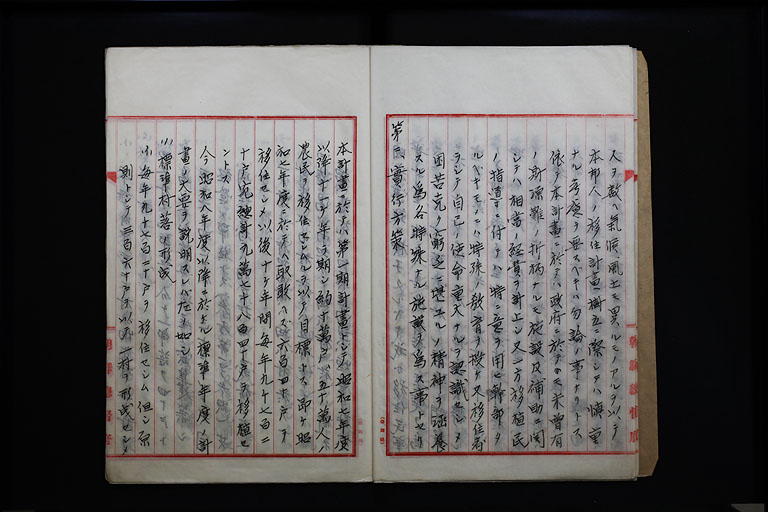 人ヲ敵ヘ氣候、風土モ異ルモノアルヲ以テ
本邦人ノ移住計畫ノ樹立ニ際シテハ愼重
ナル考慮ヲ要スヘキハ勿論ノ事ナリトス
依テ本計畫ニ於テハ政府トシテノ未曾有
ノ斯種難
施設及補助ニ関
シテハ相當ノ經費ヲ計上シ又一方移植民
ノ指導ニ付テハ特ニ意ヲ用ヒ幹部タ
ルヘキモノニハ特殊ノ敎育ヲ授ケ又移住者
ヲシテ自己ノ使命重大ナルヲ認識セシメ
困苦克ク窮乏ニ堪エルノ精神ヲ涵養
スル為各特殊ナル施設ヲ為ス事トセリ
第二、實行方策
本計畫ニ於テハ第一期計畫トシテ昭和七年度
以降十一ヶ年ヲ期シ約十萬戸、五十萬人ノ
農民ヲ移住セシムルヲ以テ目標トス即チ昭
和七年度ニ於テハ取敢ヘズ六百四十戸ヲ
移住セシメ以後十ヶ年間毎年九千七百二
十戸宛總計九萬七千八百四十戸ヲ移植セ
ントス
今昭和八年度以降ニ於ケル標準年度ノ計
畫ノ大要ヲ説明スレバ左ノ如シ
(一)標準村落ノ形成
(イ)毎年九千七百二十戸ヲ移住セシム但シ原
則トシテ三百六十戸ヲ以テ一村ヲ形成セシメ